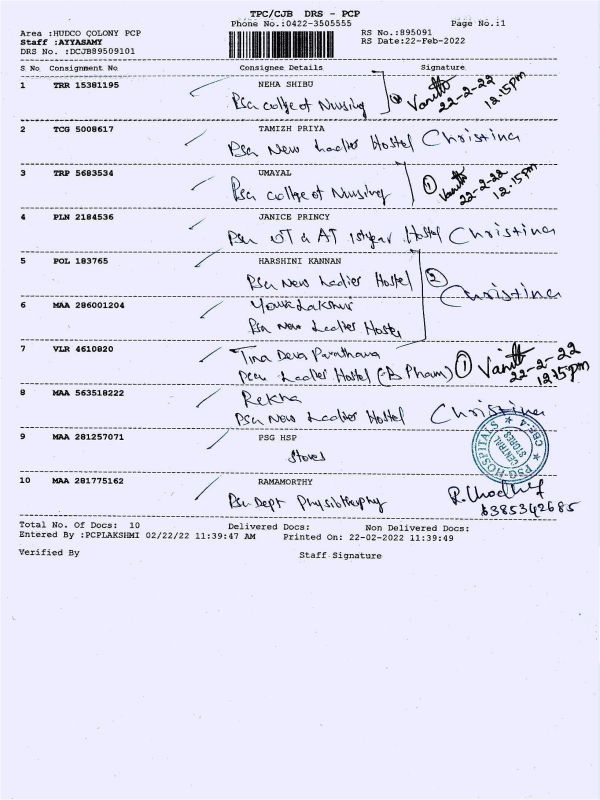 TPC/CJB DRS - PCP
Phone No.:0422-3505555 Page No.:1
Area :HUDCO COLONY PCP RS No.:895091
Staff :AYYASAMY RS Date:22-Feb-2022
DRS No. :DCJB89509101
S No Consignment No Consignee Details Signature
1 TRR 15381195 NEHA SHIBU
PSG College of Nursing Vanitha 22-2-22 12.15pm
2 TCG 5008617 TAMIZH PRIYA
PSG New Ladies Hostel Christina
3 TRP 5683534 UMAYAL
PSG College of Nursing 1 Vanitha 22-2-22 12.15pm
4 PLN 2184536 JANICE PRINCY
PSG OT & AT 1st year Hostel Christina
5 POL 183765 HARSHINI KANNAN
PSG New Ladies Hostel 2 Christina
6 MAA 286001204
PSG New Ladies Hostel
7 VLR 4610820 Tina Deva
PSG Ladies Hostel (B Pharm) 1 Vanitha 22-2-22 12.15pm
8 MAA 563518222 Rekha
PSG New Ladies Hostel Christina
9 MAA 281257071 PSG HSP
Stores
PSG HOSPITALS CBE-4
CENTRAL STORES
10 MAA 281775162 RAMAMORTHY
PSG Dept Physiotherapy
6385342685
Total No. Of Docs: 10 Delivered Docs: Non Delivered Docs:
Entered By :PCPLAKSHMI 02/22/22 11:39:47 AM Printed On: 22-02-2022 11:39:49
Verified By Staff Signature